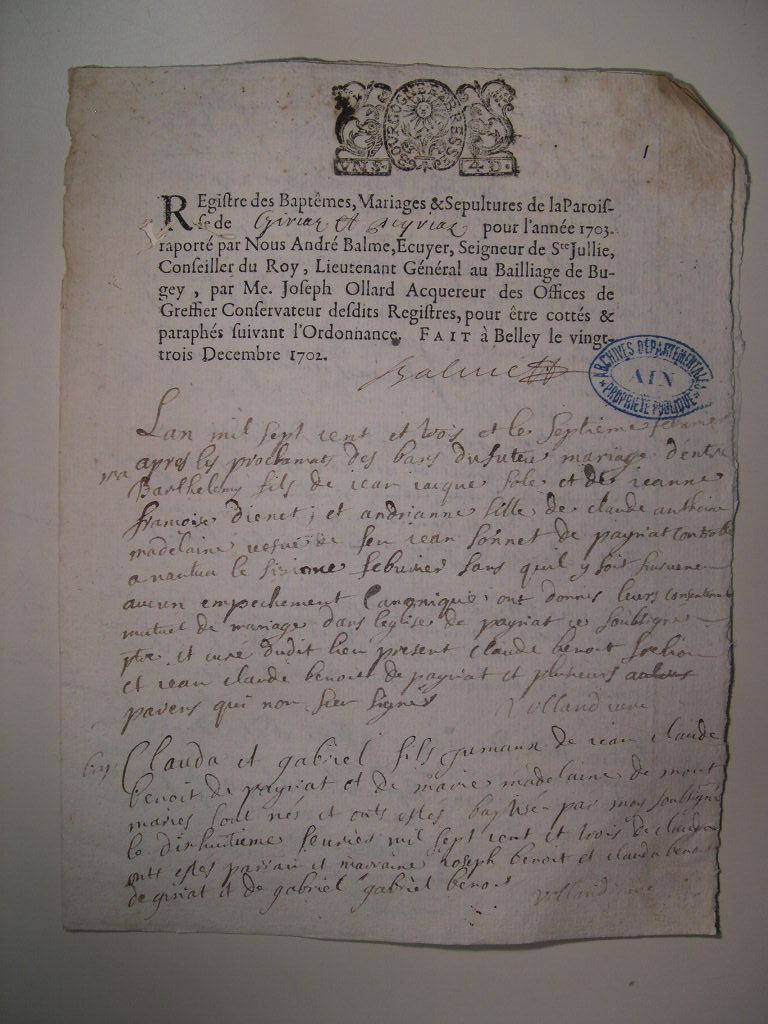 BOURGOGNE ET BRESSE
VN S. 4 D.
1
REgistre des Baptêmes, Mariages & Sepultures de la Parois-
se de Giriaz et peyriaz pour l'année 1703.
raporté par Nous André Balme, Ecuyer, Seigneur de Ste Jullie,
Conseiller du Roy, Lieutenant Général au Bailliage de Bu-
gey, par Me. Joseph Ollard Acquereur des Offices de
Greffier Conservateur desdits Registres, pour être cottés &
paraphés suivant l'Ordonnance, FAIT à Belley le vingt-
trois Decembre 1702.
Balme
ARCHIVES DÉPARTEMENTALES
AIN
PROPRIÉTÉ PUBLIQUE
Lan mil sept cent et trois et le septieme febvrier
apres les proclamats des bans du futeu mariage dentre
Barthelemy fils de iean iacque sole et de ieanne
francoise dienet, et andrianne fille de claude anthoine
madelaine vefue de feu iean sonnet de payriat
a nantua le febvrier sans quil y soit suruenu
aucun empechement Canonique ont donnes leurs
mutuel de mariage dans leglise de payriat ie soubsigne
ptre et cure dudit lieu present claude benoit
et iean claude benoit de payriat et plusieurs autres
parens qui non sceu signer Volland cure
bap. Clauda et gabriel fils jumaux de iean claude
benoit de payriat et de marie madelaine de mont
maries sont nés et onts estés baptisez par moy soubsigné
le dixhuitieme feurier mil sept cent et trois de clauda
ont estes parrain et marraine Joseph benoit et clauda benoit
de giriat et de gabriel gabriel benoit Volland cure